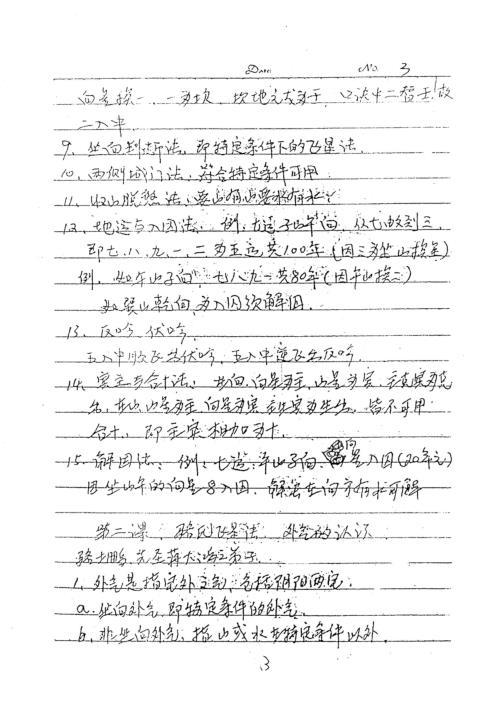 Date No. 3
向星挨一，一为坎，坎地元为壬，口诀中二壬，故
二入中
9、坐向判断法，即特定条件下的飞星法。
10、两侧城门法，符合特定条件可用
11、收山脱煞法，要山有山要水有水
12、地运与入囚法。例，七运子山午向，从七收到三，
即七、八、九、一、二为五运共100年（因三为坐山挨星）
例，如午山子向，七八九一共80年（因午山挨二）
如巽山乾向，为入囚须解囚。
13、反吟 伏吟
五入中顺飞为伏吟，五入中逆飞为反吟。
14、宾主与合十法：在向，向星为主，山星为宾，主克宾为克
出，在山，山星为主，向星为宾，主生宾为生出，皆不可用
合十，即主宾相加为十。
15、解囚法：例：七运，午山子向，向星入囚（20年之）
因坐山午的向星是入囚，解法在向方有水可解
第二课 飞星法 外气的认识
先在蒋大鸿之弟子
1、外气是指宅外之气，包括阴阳两宅：
a、坐向外气，即特定条件的外气。
b、非坐向外气，指山或水在特定条件以外
13